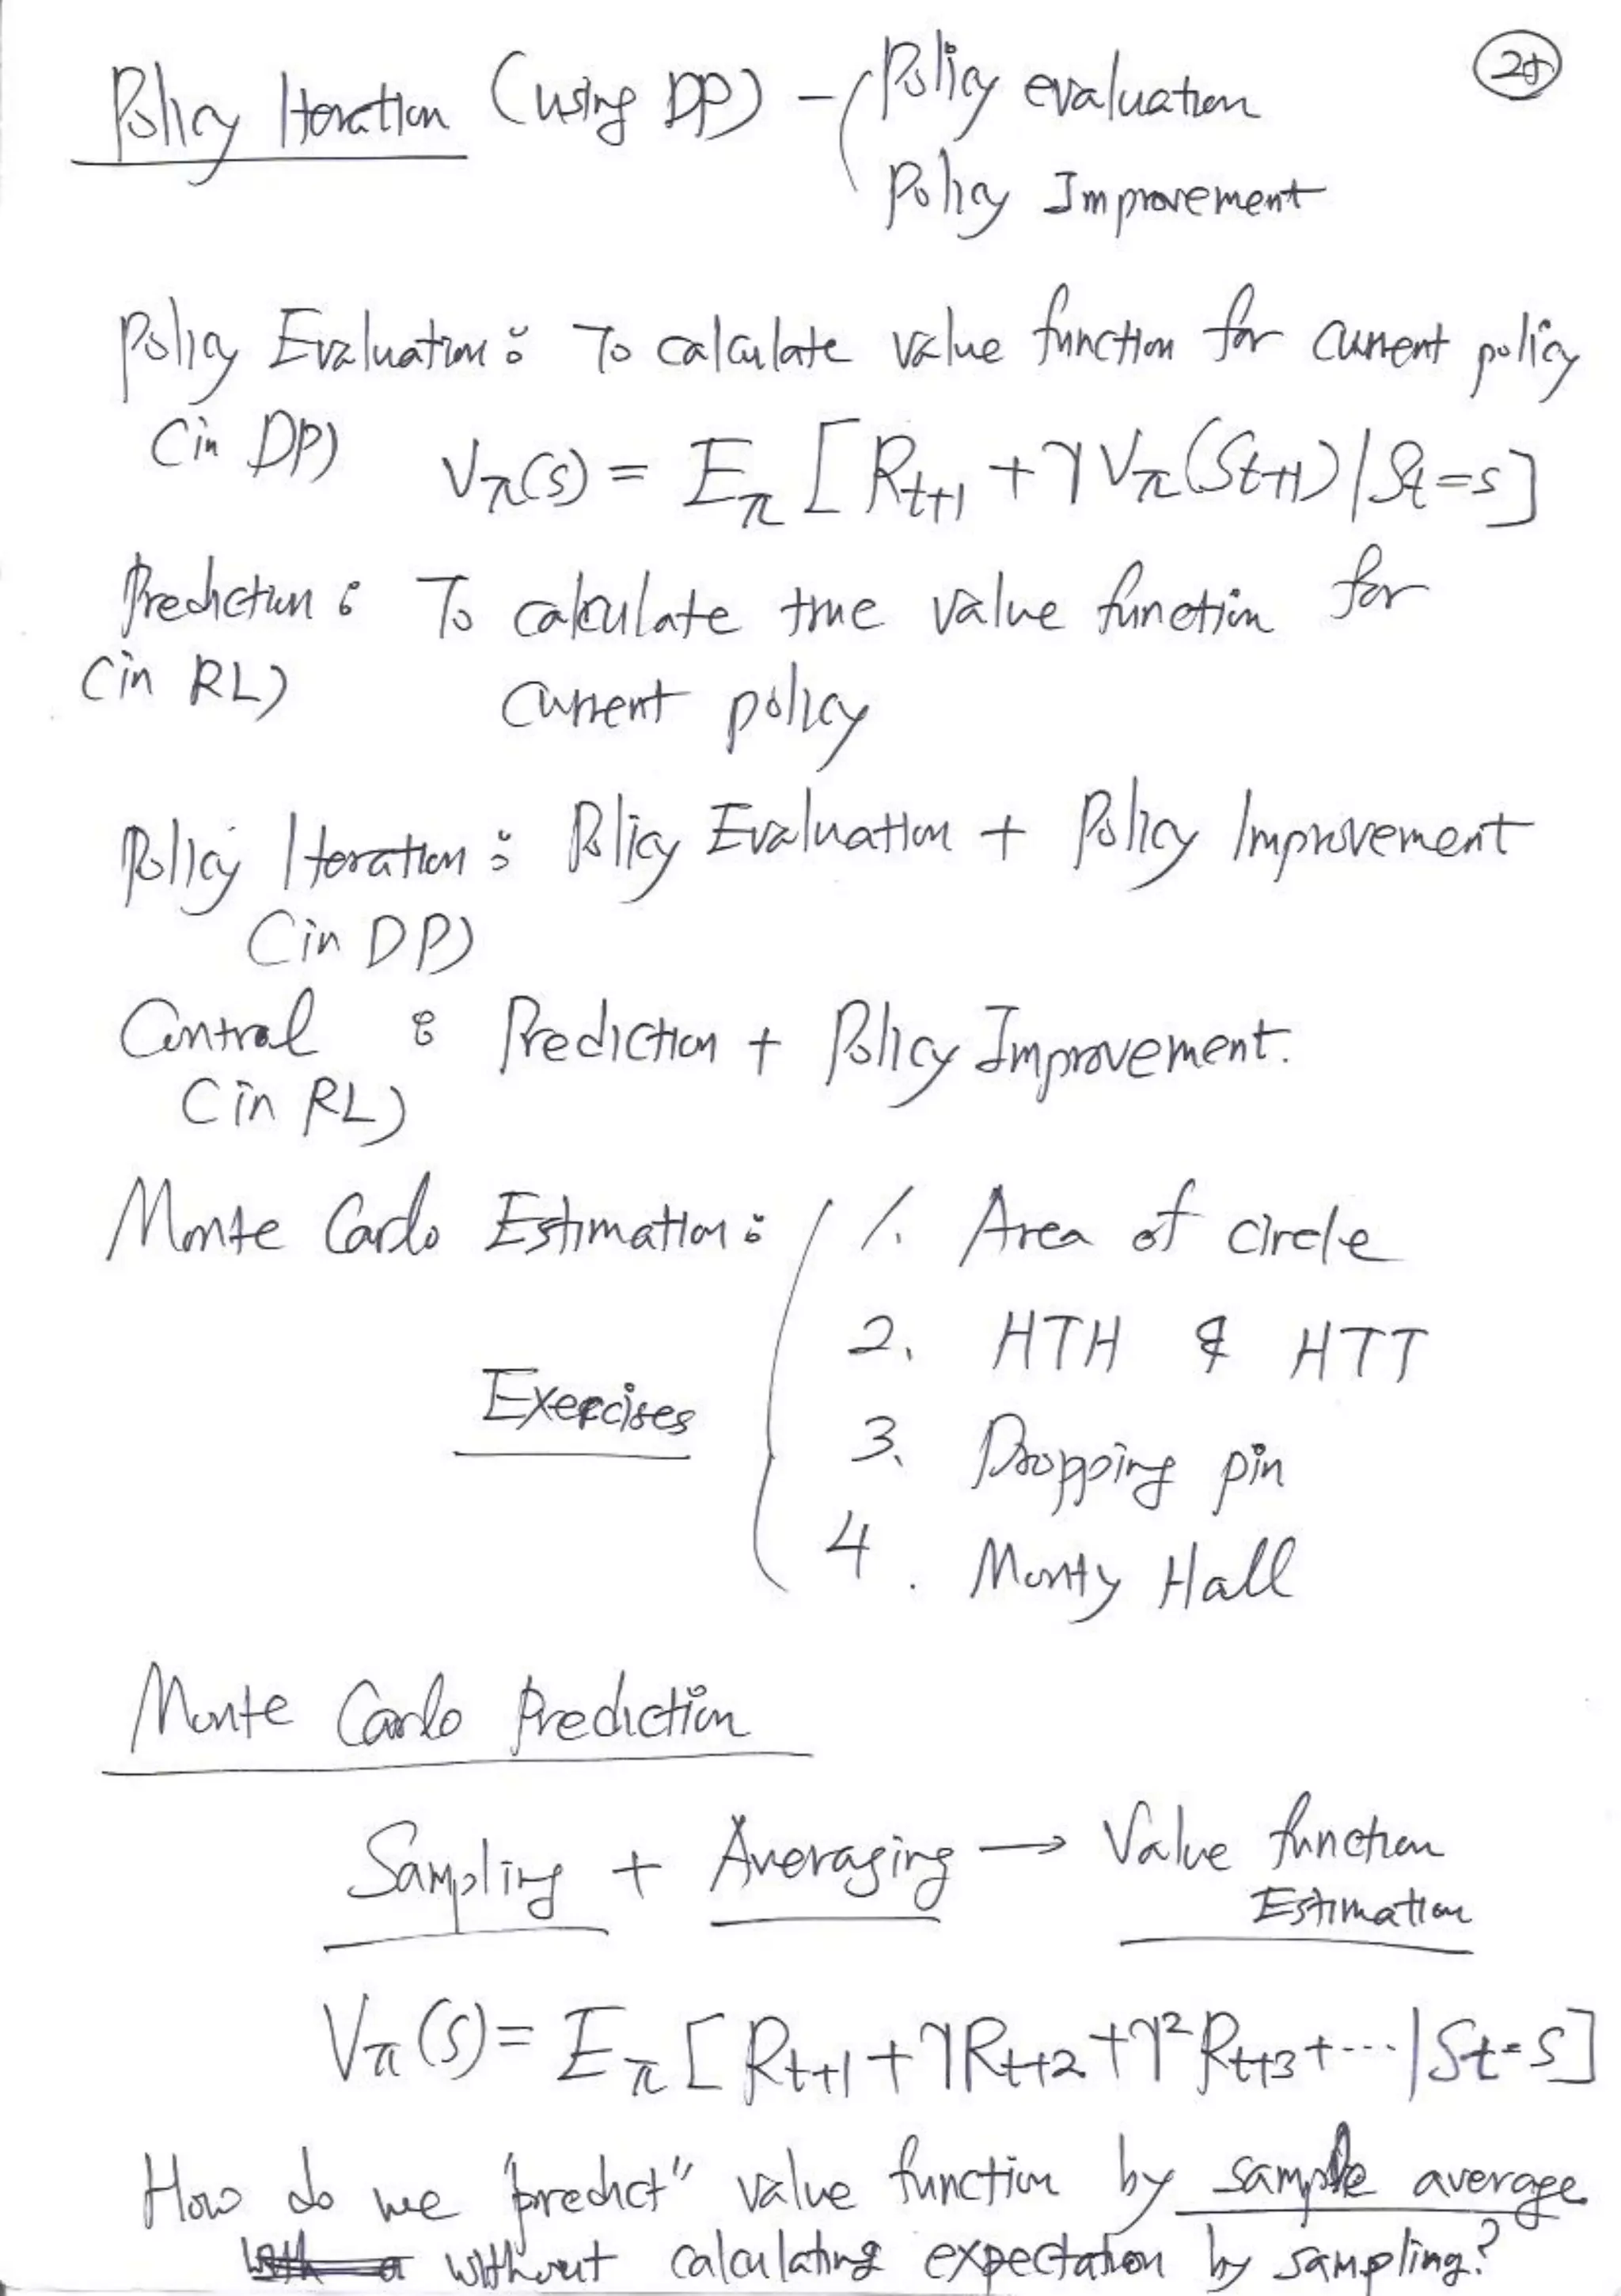 Policy Iteration (using DP) - ( Policy evaluation
Policy Improvement
Policy Evaluation: To calculate value function for current policy
(in DP) Vπ(s) = Eπ [Rt+1 + γVπ(St+1) | St=s]
Prediction: To calculate true value function for
(in RL) current policy
Policy Iteration: Policy Evaluation + Policy Improvement
(in DP)
Control : Prediction + Policy Improvement.
(in RL)
Monte Carlo Estimation: 1. Area of circle
2. HTH & HTT
Exercises
3. Dropping pin
4. Monty Hall
Monte Carlo Prediction
Sampling + Averaging → Value function
Estimation
Vπ(s) = Eπ [Rt+1 + γRt+2 + γ²Rt+3 + ··· | St=s]
How do we "predict" value function by sample average
without calculating expectation by sampling?